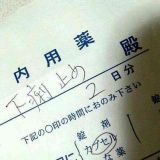 内用薬 殿
下痢止め
2日分
下記の○印の時間におのみ下さい
錠剤
カプセル
1
錠